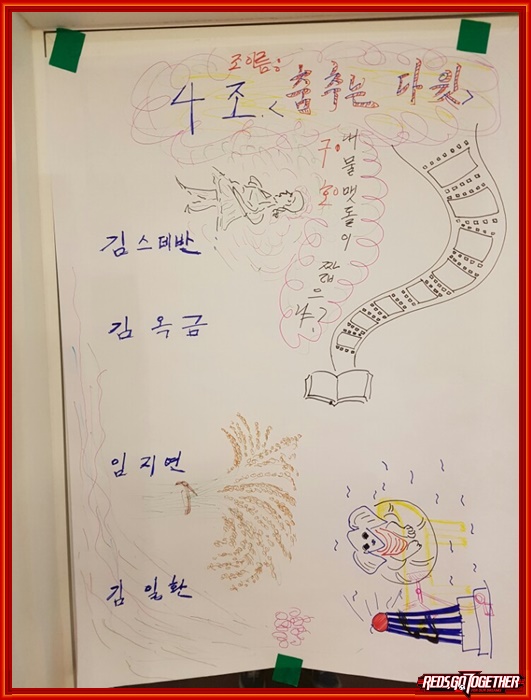 조이름:
4조. <춤추는 다윗>
구호
내물맷돌이 짧으냐?
김스테반
김옥금
임지연
김일환
REDSGOTOGETHER